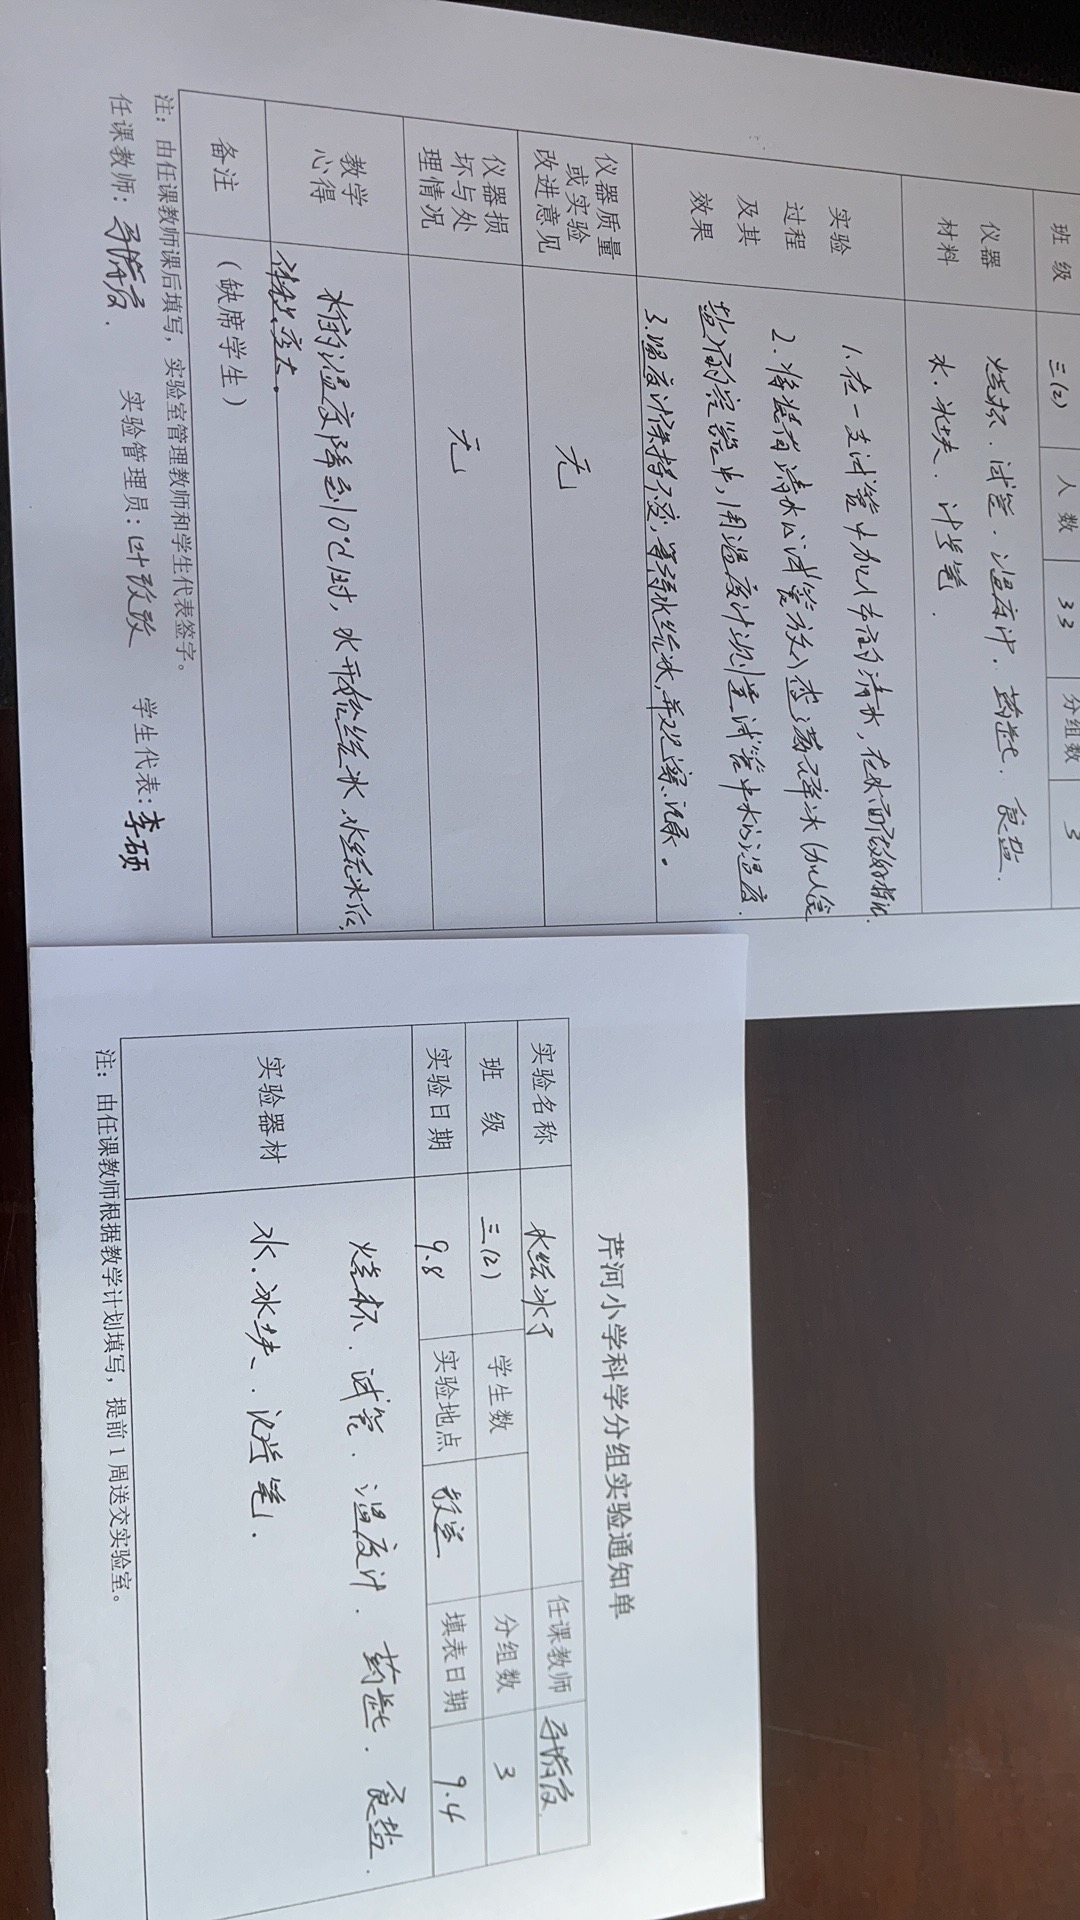 班 级 三(2) 人 数 33 分组数 3
仪器
材料
烧杯、试管、温度计、药匙、食盐、
水、冰块、记号笔.
实验
过程
及其
效果
1.在一支试管中加入 清水,在水面 标记.
2.将装有清水的试管放入 满碎冰(加入食
盐)的容器中,用温度计测量试管中水的温度.
3.温度计保持不变,等待水结冰,并观察、记录。
仪器质量
或实验
改进意见
无
仪器损
坏与处
理情况
无
教学
心得
水的温度降到0℃时,水开始结冰,水结冰后,
体积变大。
备注
(缺席学生)
注:由任课教师课后填写,实验室管理教师和学生代表签字。
任课教师: 实验管理员:叶改改 学生代表:李硕
芹河小学科学分组实验通知单
实验名称 水结冰了 任课教师
班 级 三(2) 学生数 分组数 3
实验日期 9.8 实验地点 教室 填表日期 9.4
实验器材
烧杯、试管、温度计、药匙、食盐、
水、冰块、记号笔.
注:由任课教师根据教学计划填写,提前1周送交实验室。